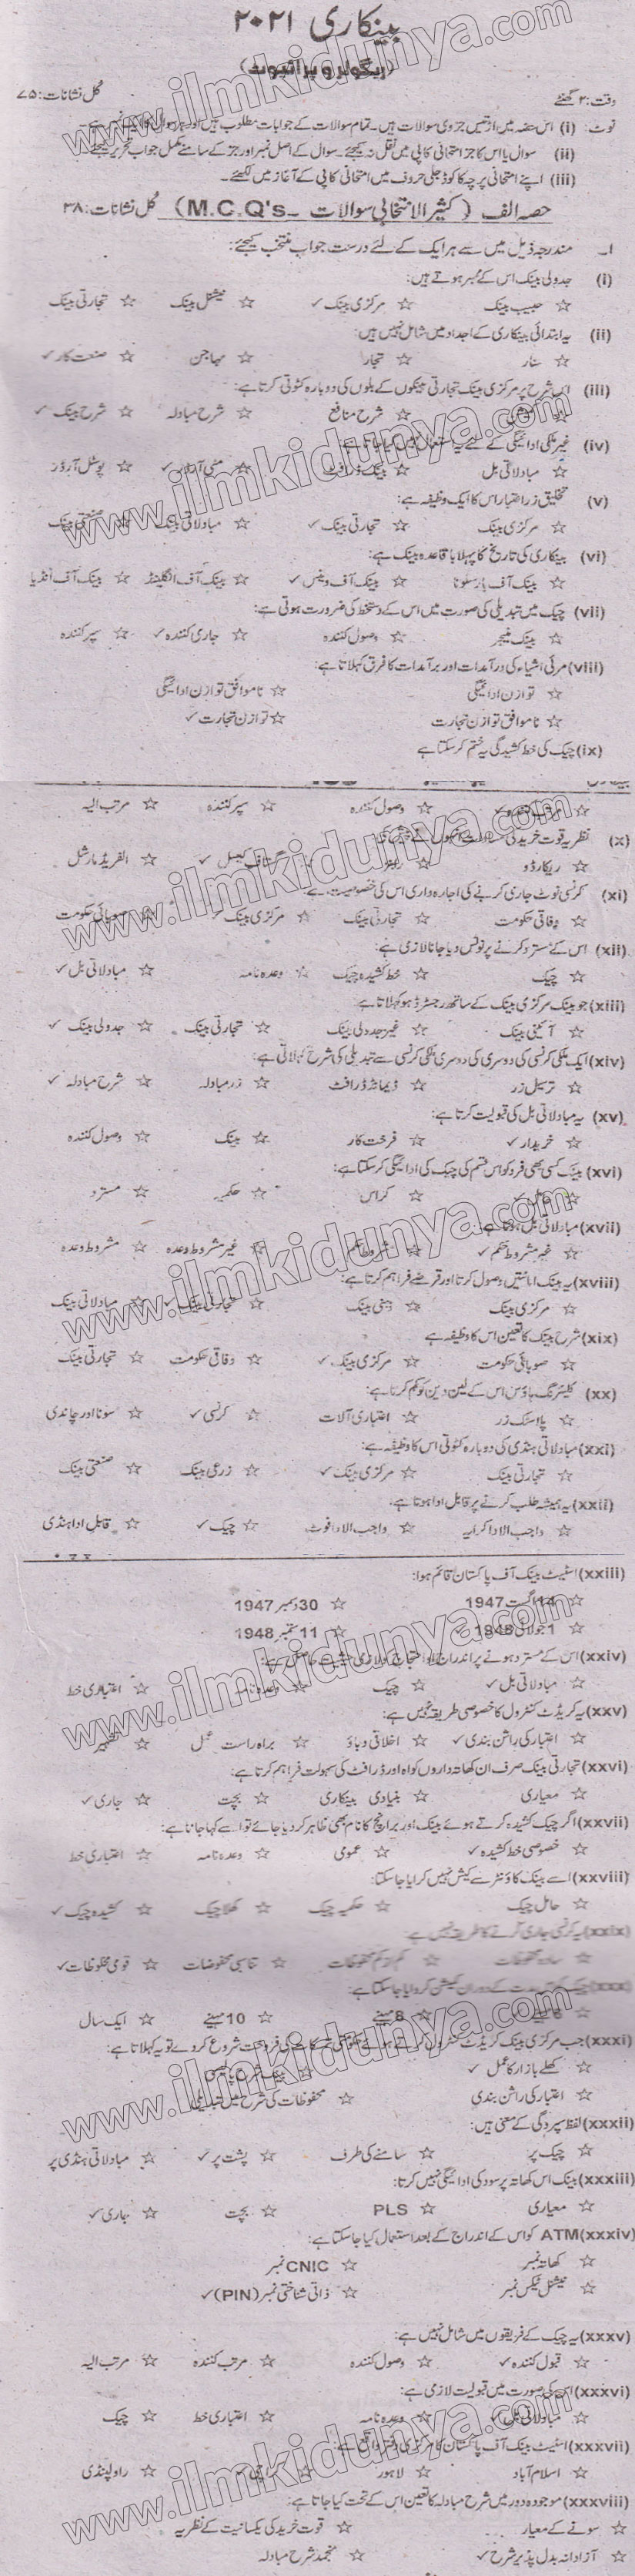 بینکاری ۲۰۲۱
(ریگولر و پرائیوٹ)
وقت: ۳ گھنٹے کل نشانات: ۷۵
نوٹ: (i) اس حصہ میں اڑتیس جزوی سوالات ہیں۔ تمام سوالات کے جوابات مطلوب ہیں اور ہر سوال کا ایک نمبر ہے۔
(ii) سوال یا اس کا جز امتحانی کاپی میں نقل نہ کیجئے۔ سوال کے اصل نمبر اور جز کے سامنے مکمل جواب تحریر کیجئے۔
(iii) اپنے امتحانی پرچہ کا کوڈ جلی حروف میں امتحانی کاپی کے آغاز میں لکھئے۔
حصہ الف (کثیر الانتخابی سوالات ۔ M.C.Q's) کل نشانات: ۳۸
۱۔ مندرجہ ذیل میں سے ہر ایک کے لئے درست جواب منتخب کیجئے:
(i) جدولی بینک اس کے ممبر ہوتے ہیں:
☆ حبیب بینک ☆ مرکزی بینک ✓ ☆ نیشنل بینک ☆ تجارتی بینک
(ii) یہ ابتدائی بینکاری کے اجداد میں شامل نہیں ہیں:
☆ سنار ☆ تجار ☆ مہاجن ☆ صنعت کار ✓
(iii) اس شرح پر مرکزی بینک تجارتی بینکوں کے بلوں کی دوبارہ کٹوتی کرتا ہے:
☆ ☆ شرح منافع ☆ شرح مبادلہ ☆ شرح بینک ✓
(iv) غیر ملکی ادائیگی کے لئے یہ استعمال نہیں کیا جاتا ہے:
☆ مبادلاتی بل ☆ بینک ڈرافٹ ☆ منی آرڈر ✓ ☆ پوسٹل آرڈر
(v) تخلیق زر اعتبار اس کا ایک وظیفہ ہے:
☆ مرکزی بینک ☆ تجارتی بینک ✓ ☆ مبادلاتی بینک ☆ صنعتی بینک
(vi) بینکاری کی تاریخ کا پہلا باقاعدہ بینک ہے:
☆ بینک آف بارسلونا ☆ بینک آف وینس ✓ ☆ بینک آف انگلینڈ ☆ بینک آف انڈیا
(vii) چیک میں تبدیلی کی صورت میں اس کے دستخط کی ضرورت ہوتی ہے:
☆ بینک منیجر ☆ وصول کنندہ ☆ جاری کنندہ ✓ ☆ سپر کنندہ
(viii) مرئی اشیاء کی درآمدات اور برآمدات کا فرق کہلاتا ہے:
☆ توازن ادائیگی ☆ ناموافق توازن ادائیگی
☆ ناموافق توازن تجارت ☆ توازن تجارت ✓
(ix) چیک کی خط کشیدگی یہ ختم کر سکتا ہے
☆ مرتب کنندہ ✓ ☆ وصول کنندہ ☆ سپر کنندہ ☆ مرتب الیہ
(x) نظریہ قوت خرید کی
☆ ریکارڈو ☆ ☆ گستاف کیسل ✓ ☆ الفریڈ مارشل
(xi) کرنسی نوٹ جاری کرنے کی اجارہ داری اس کی خصوصیت ہے
☆ وفاقی حکومت ☆ تجارتی بینک ☆ مرکزی بینک ✓ ☆ صوبائی حکومت
(xii) اس کے مسترد کرنے پر نوٹس دیا جانا لازمی ہے:
☆ چیک ☆ خط کشیدہ چیک ☆ وعدہ نامہ ☆ مبادلاتی بل ✓
(xiii) جو بینک مرکزی بینک کے ساتھ رجسٹرڈ ہو کہلاتا ہے:
☆ آئینی بینک ☆ غیر جدولی بینک ☆ تجارتی بینک ☆ جدولی بینک ✓
(xiv) ایک ملکی کرنسی کی دوسری کی دوسری ملکی کرنسی سے تبدیلی کی شرح کہلاتی ہے:
☆ ترسیل زر ☆ ڈیمانڈ ڈرافٹ ☆ زر مبادلہ ☆ شرح مبادلہ ✓
(xv) یہ مبادلاتی بل کی قبولیت کرتا ہے:
☆ خریدار ✓ ☆ فرخت کار ☆ بینک ☆ وصول کنندہ
(xvi) بینک کسی بھی فرد کو اس قسم کی چیک کی ادائیگی کر سکتا ہے:
☆ حامل ✓ ☆ کراس ☆ حکمیہ ☆ مسترد
(xvii) مبادلاتی بل ہوتا ہے
☆ غیر مشروط حکم ✓ ☆ مشروط حکم ☆ غیر مشروط وعدہ ☆ مشروط وعدہ
(xviii) یہ بینک امانتیں وصول کرتا اور قرضے فراہم کرتا ہے:
☆ مرکزی بینک ☆ بینک ☆ تجارتی بینک ✓ ☆ مبادلاتی بینک
(xix) شرح بینک کا تعین اس کا وظیفہ ہے
☆ صوبائی حکومت ☆ مرکزی بینک ✓ ☆ وفاقی حکومت ☆ تجارتی بینک
(xx) کلیئرنگ ہاؤس اس کے لین دین کو کم کرتا ہے:
☆ پلاسٹک زر ☆ اعتباری آلات ☆ کرنسی ✓ ☆ سونا اور چاندی
(xxi) مبادلاتی ہنڈی کی دوبارہ کٹوتی اس کا وظیفہ ہے:
☆ تجارتی بینک ☆ مرکزی بینک ✓ ☆ زرعی بینک ☆ صنعتی بینک
(xxii) یہ ہمیشہ طلب کرنے پر قابل ادا ہوتا ہے:
☆ واجب الادا کرایہ ☆ واجب الادا نوٹ ☆ چیک ✓ ☆ قابل ادا ہنڈی
(xxiii) اسٹیٹ بینک آف پاکستان قائم ہوا:
☆ 14 اگست 1947 ☆ 30 دسمبر 1947
☆ 1 جولائی 1948 ✓ ☆ 11 ستمبر 1948
(xxiv) اس کے مسترد ہونے پر اندراج اور احتجاج
☆ مبادلاتی بل ✓ ☆ چیک ☆ وعدہ نامہ ☆ اعتباری خط
(xxv) یہ کریڈٹ کنٹرول کا خصوصی طریقہ نہیں ہے:
☆ اعتبار کی راشن بندی ✓ ☆ اخلاقی دباؤ ☆ براہ راست عمل ☆ تشہیر
(xxvi) تجارتی بینک صرف ان کھاتہ داروں کو اوور ڈرافٹ کی سہولت فراہم کرتا ہے:
☆ معیاری ☆ بنیادی بینکاری ☆ بچت ☆ جاری ✓
(xxvii) اگر چیک کشیدہ کرتے ہوئے بینک اور برانچ کا نام بھی ظاہر کر دیا جائے تو اسے کہا جاتا ہے:
☆ خصوصی خط کشیدہ ✓ ☆ عمومی ☆ وعدہ نامہ ☆ اعتباری خط
(xxviii) اسے بینک کاؤنٹر سے کیش نہیں کرایا جا سکتا:
☆ حامل چیک ☆ حکمیہ چیک ☆ کھلا چیک ☆ کشیدہ چیک ✓
(xxix) یہ کرنسی جاری کرنے کا طریقہ نہیں ہے:
☆ سادہ محفوظات ☆ کم از کم محفوظات ☆ تناسبی محفوظات ☆ قومی محفوظات ✓
(xxx) چیک کو مدت کے دوران کیش کروایا جا سکتا ہے:
☆ 6 مہینے ☆ 8 مہینے ☆ 10 مہینے ☆ ایک سال
(xxxi) جب مرکزی بینک کریڈٹ کنٹرول کرنے کے لئے حکومتی تمسکات کی فروخت شروع کر دے تو یہ کہلاتا ہے:
☆ کھلے بازار کا عمل ✓ ☆ بینک شرح پالیسی
☆ اعتبار کی راشن بندی ☆ محفوظات کی شرح میں تبدیلی
(xxxii) لفظ سپردگی کے معنی ہیں:
☆ چیک پر ☆ سامنے کی طرف ☆ پشت پر ✓ ☆ مبادلاتی ہنڈی پر
(xxxiii) بینک اس کھاتہ پر سود کی ادائیگی نہیں کرتا:
☆ معیاری ☆ PLS ☆ بچت ☆ جاری ✓
(xxxiv) ATM کو اس کے اندراج کے بعد استعمال کیا جا سکتا ہے:
☆ کھاتہ نمبر ☆ CNIC نمبر
☆ نیشنل ٹیکس نمبر ☆ ذاتی شناختی نمبر (PIN) ✓
(xxxv) یہ چیک کے فریقوں میں شامل نہیں ہے:
☆ قبول کنندہ ✓ ☆ وصول کنندہ ☆ مرتب کنندہ ☆ مرتب الیہ
(xxxvi) اس کی صورت میں قبولیت لازمی ہے:
☆ مبادلاتی بل ✓ ☆ وعدہ نامہ ☆ اعتباری خط ☆ چیک
(xxxvii) اسٹیٹ بینک آف پاکستان کا مرکزی دفتر واقع ہے:
☆ اسلام آباد ☆ لاہور ☆ کراچی ✓ ☆ راولپنڈی
(xxxviii) موجودہ دور میں شرح مبادلہ کا تعین اس کے تحت کیا جاتا ہے:
☆ سونے کے معیار ☆ قوت خرید کی یکسانیت کے نظریہ
☆ آزادانہ بدل پذیر شرح ✓ ☆ منجمد شرح مبادلہ
www.ilmkidunya.com
www.ilmkidunya.com
www.ilmkidunya.com
www.ilmkidunya.com
www.ilmkidunya.com
www.ilmkidunya.com
www.ilmkidunya.com